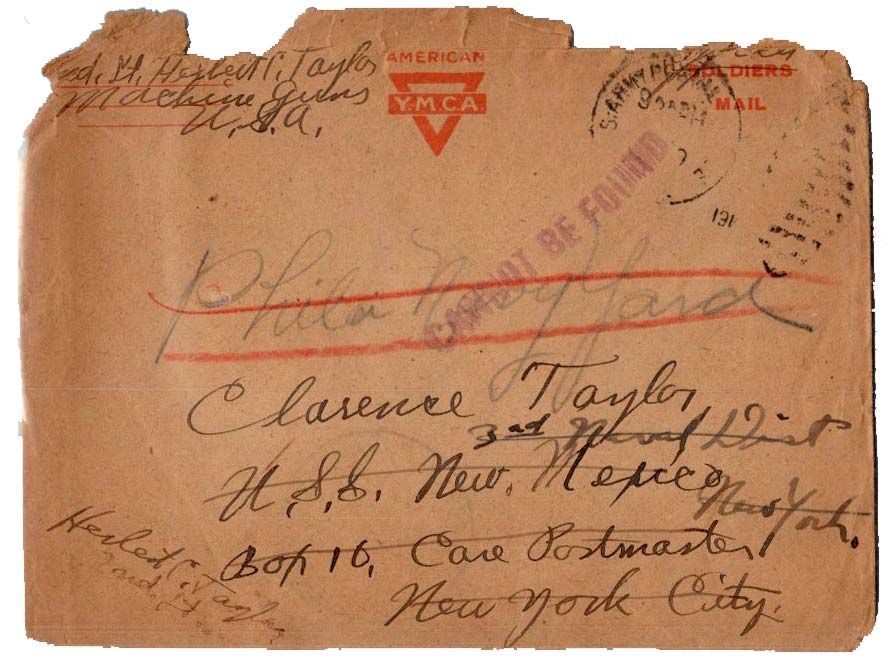 2nd. Lt. Herbert C. Taylor
Machine Guns
U.S.A.
AMERICAN
Y.M.C.A.
SOLDIERS
MAIL
8
191
CANNOT BE FOUND
Phila Navy Yard
Clarence Taylor
3rd Naval Dist
U.S.S. New Mexico
New York.
Box 10, Care Postmaster
New York City.
Herbert C. Taylor
2nd. Lt